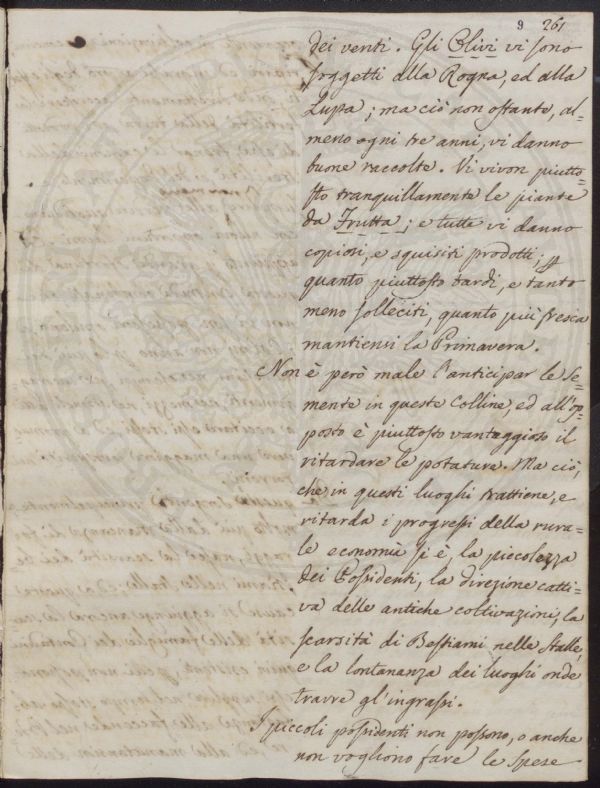 9 261
dei venti. Gli Olivi vi sono
soggetti alla Rogna, ed alla
Lupa; ma ciò non ostante, al=
meno ogni tre anni, vi danno
buone raccolte. Vi vivon piutto=
sto tranquillamente le piante
da Frutta; e tutte vi danno
copiosi, e squisiti prodotti;
quanto piuttosto tardi, e tanto
meno solleciti, quanto più fresca
mantiensi la Primavera.
Non è però male l'anticipar le se=
mente in queste Colline, ed all'op=
posto è piuttosto vantaggioso il
ritardare le potature. Ma ciò,
che in questi luoghi trattiene, e
ritarda i progressi della rura=
le economia si è, la piccolezza
dei Possidenti, la direzione catti=
va delle antiche coltivazioni, la
scarsità di Bestiami nelle Stalle,
e la lontananza dei luoghi onde
trarre gl'ingrassi.
I piccoli possidenti non possono, o anche
non vogliono fare le spese